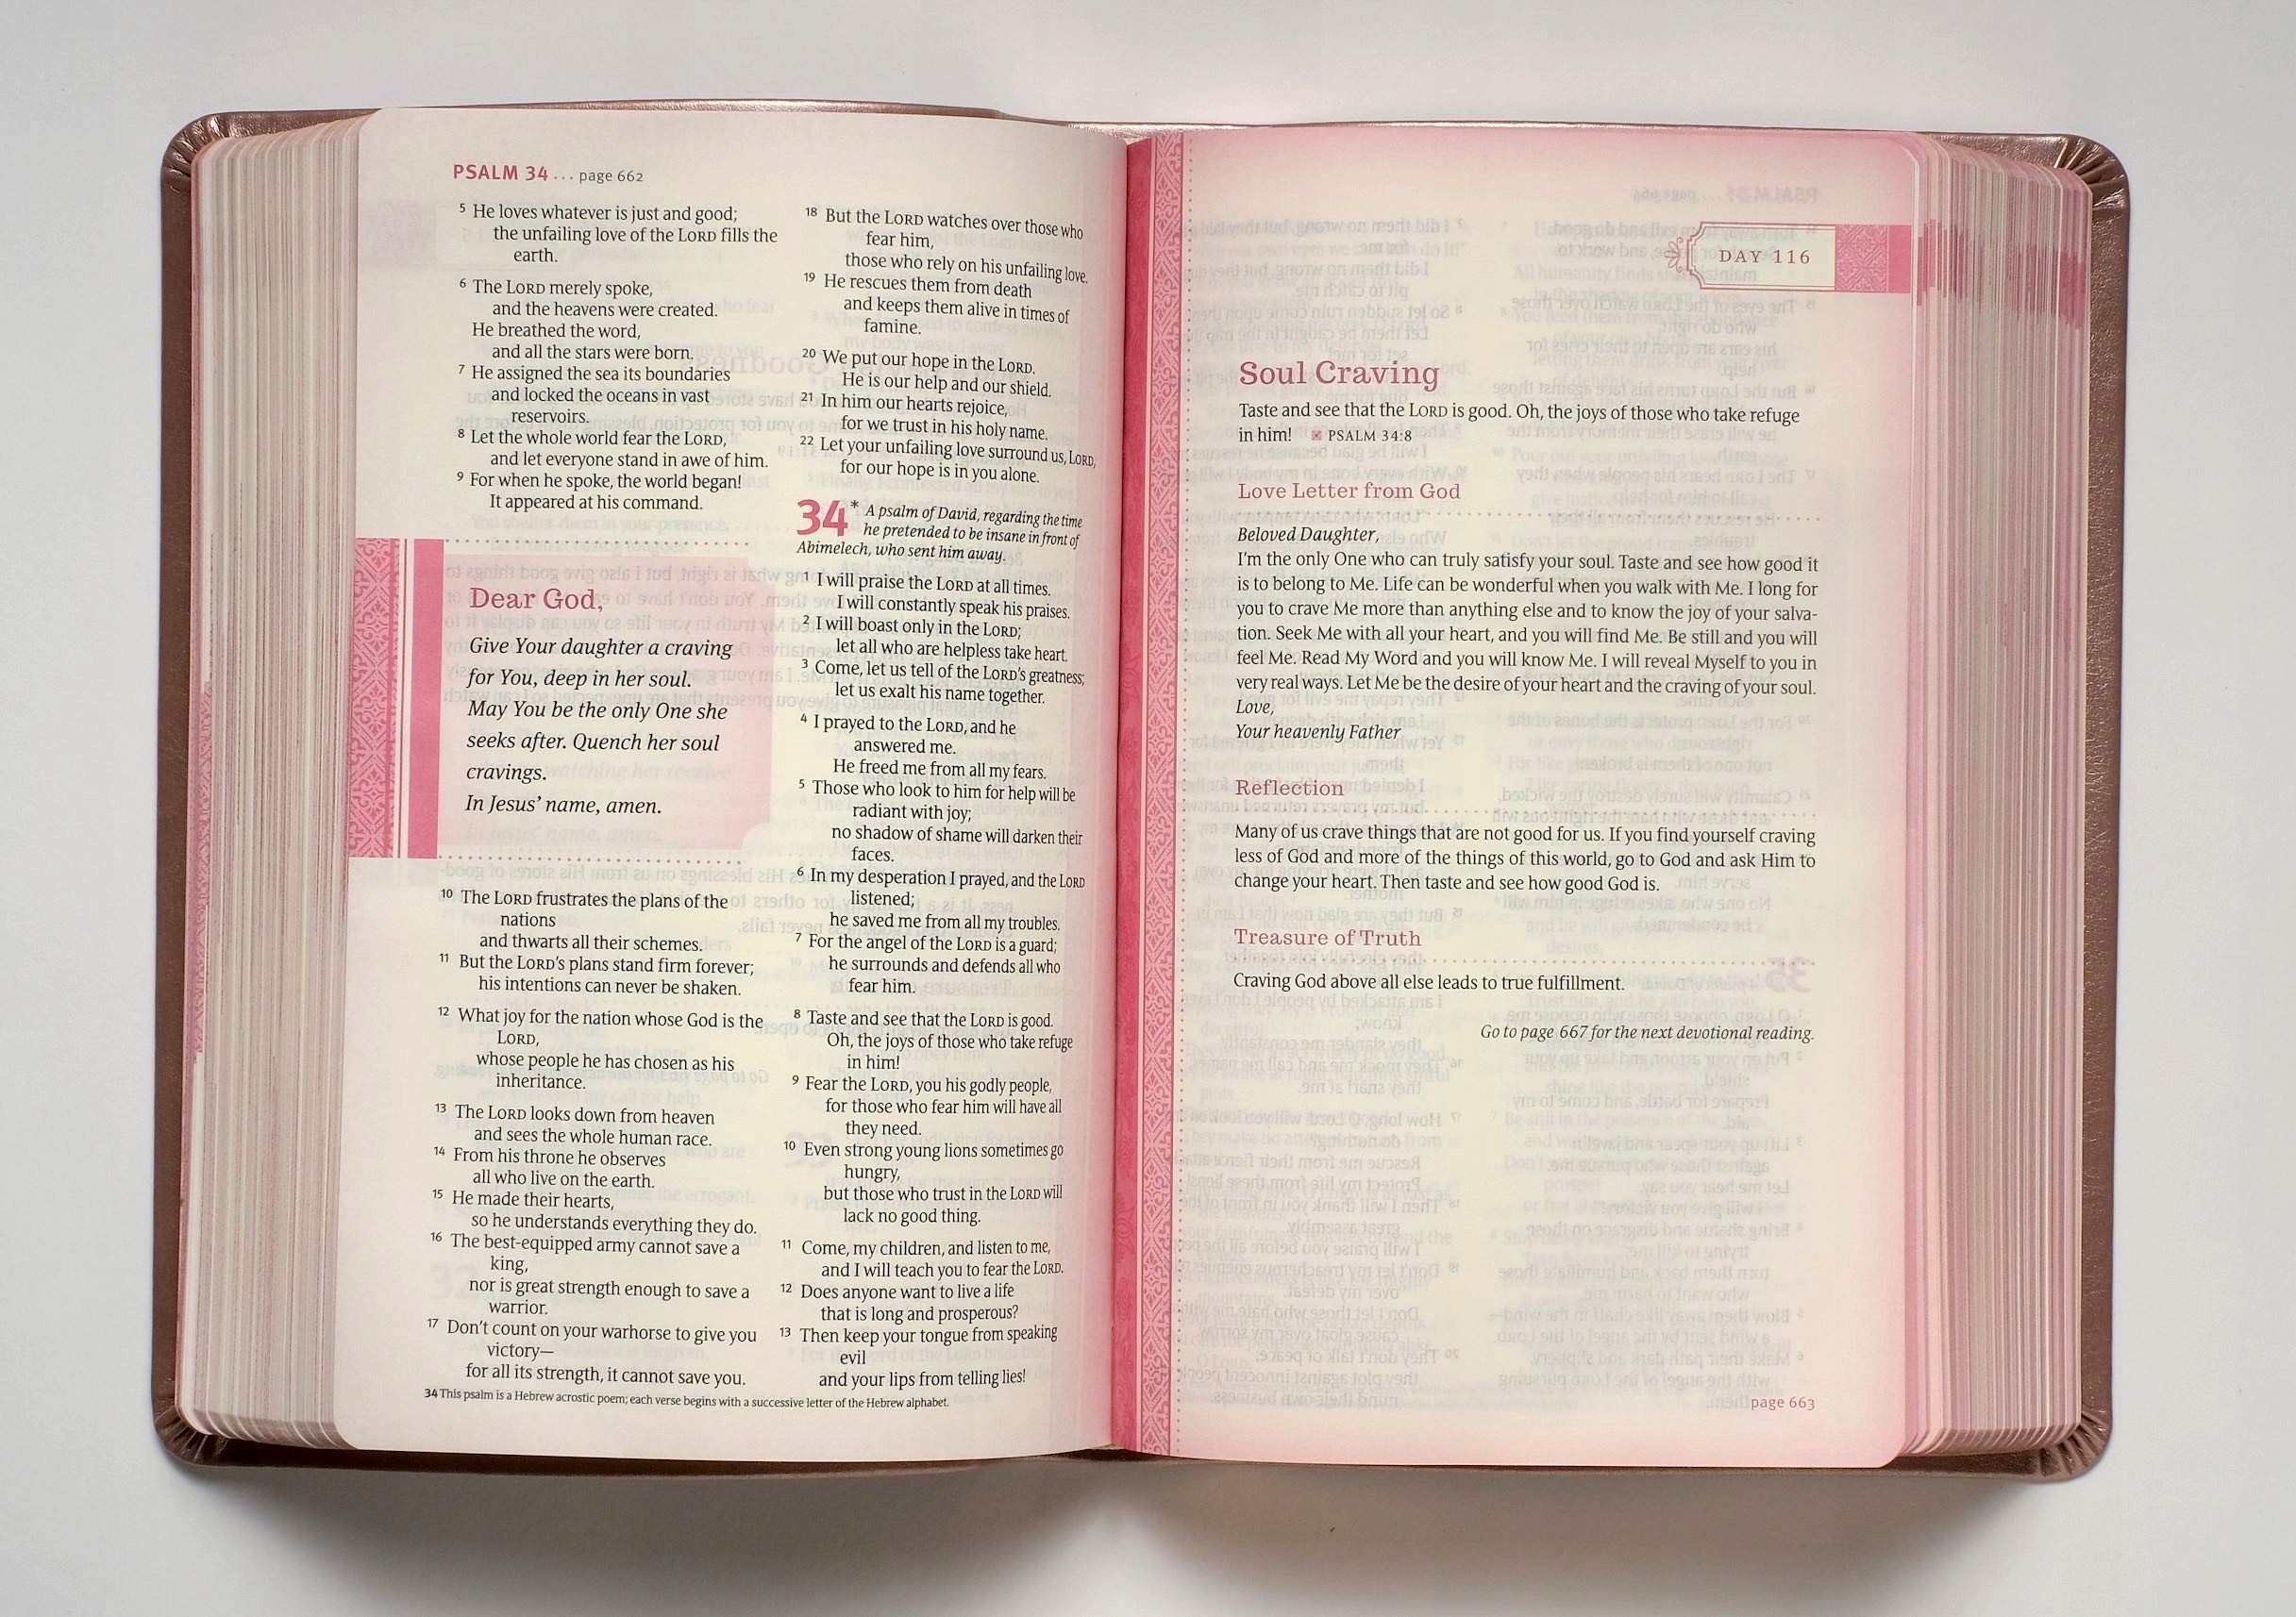 PSALM 34 ... page 662
5 He loves whatever is just and good;
the unfailing love of the LORD fills the
earth.
6 The LORD merely spoke,
and the heavens were created.
He breathed the word,
and all the stars were born.
7 He assigned the sea its boundaries
and locked the oceans in vast
reservoirs.
8 Let the whole world fear the LORD,
and let everyone stand in awe of him.
9 For when he spoke, the world began!
It appeared at his command.
Dear God,
Give Your daughter a craving
for You, deep in her soul.
May You be the only One she
seeks after. Quench her soul
cravings.
In Jesus' name, amen.
10 The LORD frustrates the plans of the
nations
and thwarts all their schemes.
11 But the LORD's plans stand firm forever;
his intentions can never be shaken.
12 What joy for the nation whose God is the
LORD,
whose people he has chosen as his
inheritance.
13 The LORD looks down from heaven
and sees the whole human race.
14 From his throne he observes
all who live on the earth.
15 He made their hearts,
so he understands everything they do.
16 The best-equipped army cannot save a
king,
nor is great strength enough to save a
warrior.
17 Don't count on your warhorse to give you
victory—
for all its strength, it cannot save you.
18 But the LORD watches over those who
fear him,
those who rely on his unfailing love.
19 He rescues them from death
and keeps them alive in times of
famine.
20 We put our hope in the LORD.
He is our help and our shield.
21 In him our hearts rejoice,
for we trust in his holy name.
22 Let your unfailing love surround us, LORD,
for our hope is in you alone.
34* A psalm of David, regarding the time
he pretended to be insane in front of
Abimelech, who sent him away.
1 I will praise the LORD at all times.
I will constantly speak his praises.
2 I will boast only in the LORD;
let all who are helpless take heart.
3 Come, let us tell of the LORD's greatness;
let us exalt his name together.
4 I prayed to the LORD, and he
answered me.
He freed me from all my fears.
5 Those who look to him for help will be
radiant with joy;
no shadow of shame will darken their
faces.
6 In my desperation I prayed, and the LORD
listened;
he saved me from all my troubles.
7 For the angel of the LORD is a guard;
he surrounds and defends all who
fear him.
8 Taste and see that the LORD is good.
Oh, the joys of those who take refuge
in him!
9 Fear the LORD, you his godly people,
for those who fear him will have all
they need.
10 Even strong young lions sometimes go
hungry,
but those who trust in the LORD will
lack no good thing.
11 Come, my children, and listen to me,
and I will teach you to fear the LORD.
12 Does anyone want to live a life
that is long and prosperous?
13 Then keep your tongue from speaking
evil
and your lips from telling lies!
34 This psalm is a Hebrew acrostic poem; each verse begins with a successive letter of the Hebrew alphabet.
DAY 116
Soul Craving
Taste and see that the LORD is good. Oh, the joys of those who take refuge
in him! PSALM 34:8
Love Letter from God
Beloved Daughter,
I'm the only One who can truly satisfy your soul. Taste and see how good it
is to belong to Me. Life can be wonderful when you walk with Me. I long for
you to crave Me more than anything else and to know the joy of your salva-
tion. Seek Me with all your heart, and you will find Me. Be still and you will
feel Me. Read My Word and you will know Me. I will reveal Myself to you in
very real ways. Let Me be the desire of your heart and the craving of your soul.
Love,
Your heavenly Father
Reflection
Many of us crave things that are not good for us. If you find yourself craving
less of God and more of the things of this world, go to God and ask Him to
change your heart. Then taste and see how good God is.
Treasure of Truth
Craving God above all else leads to true fulfillment.
Go to page 667 for the next devotional reading.
page 663